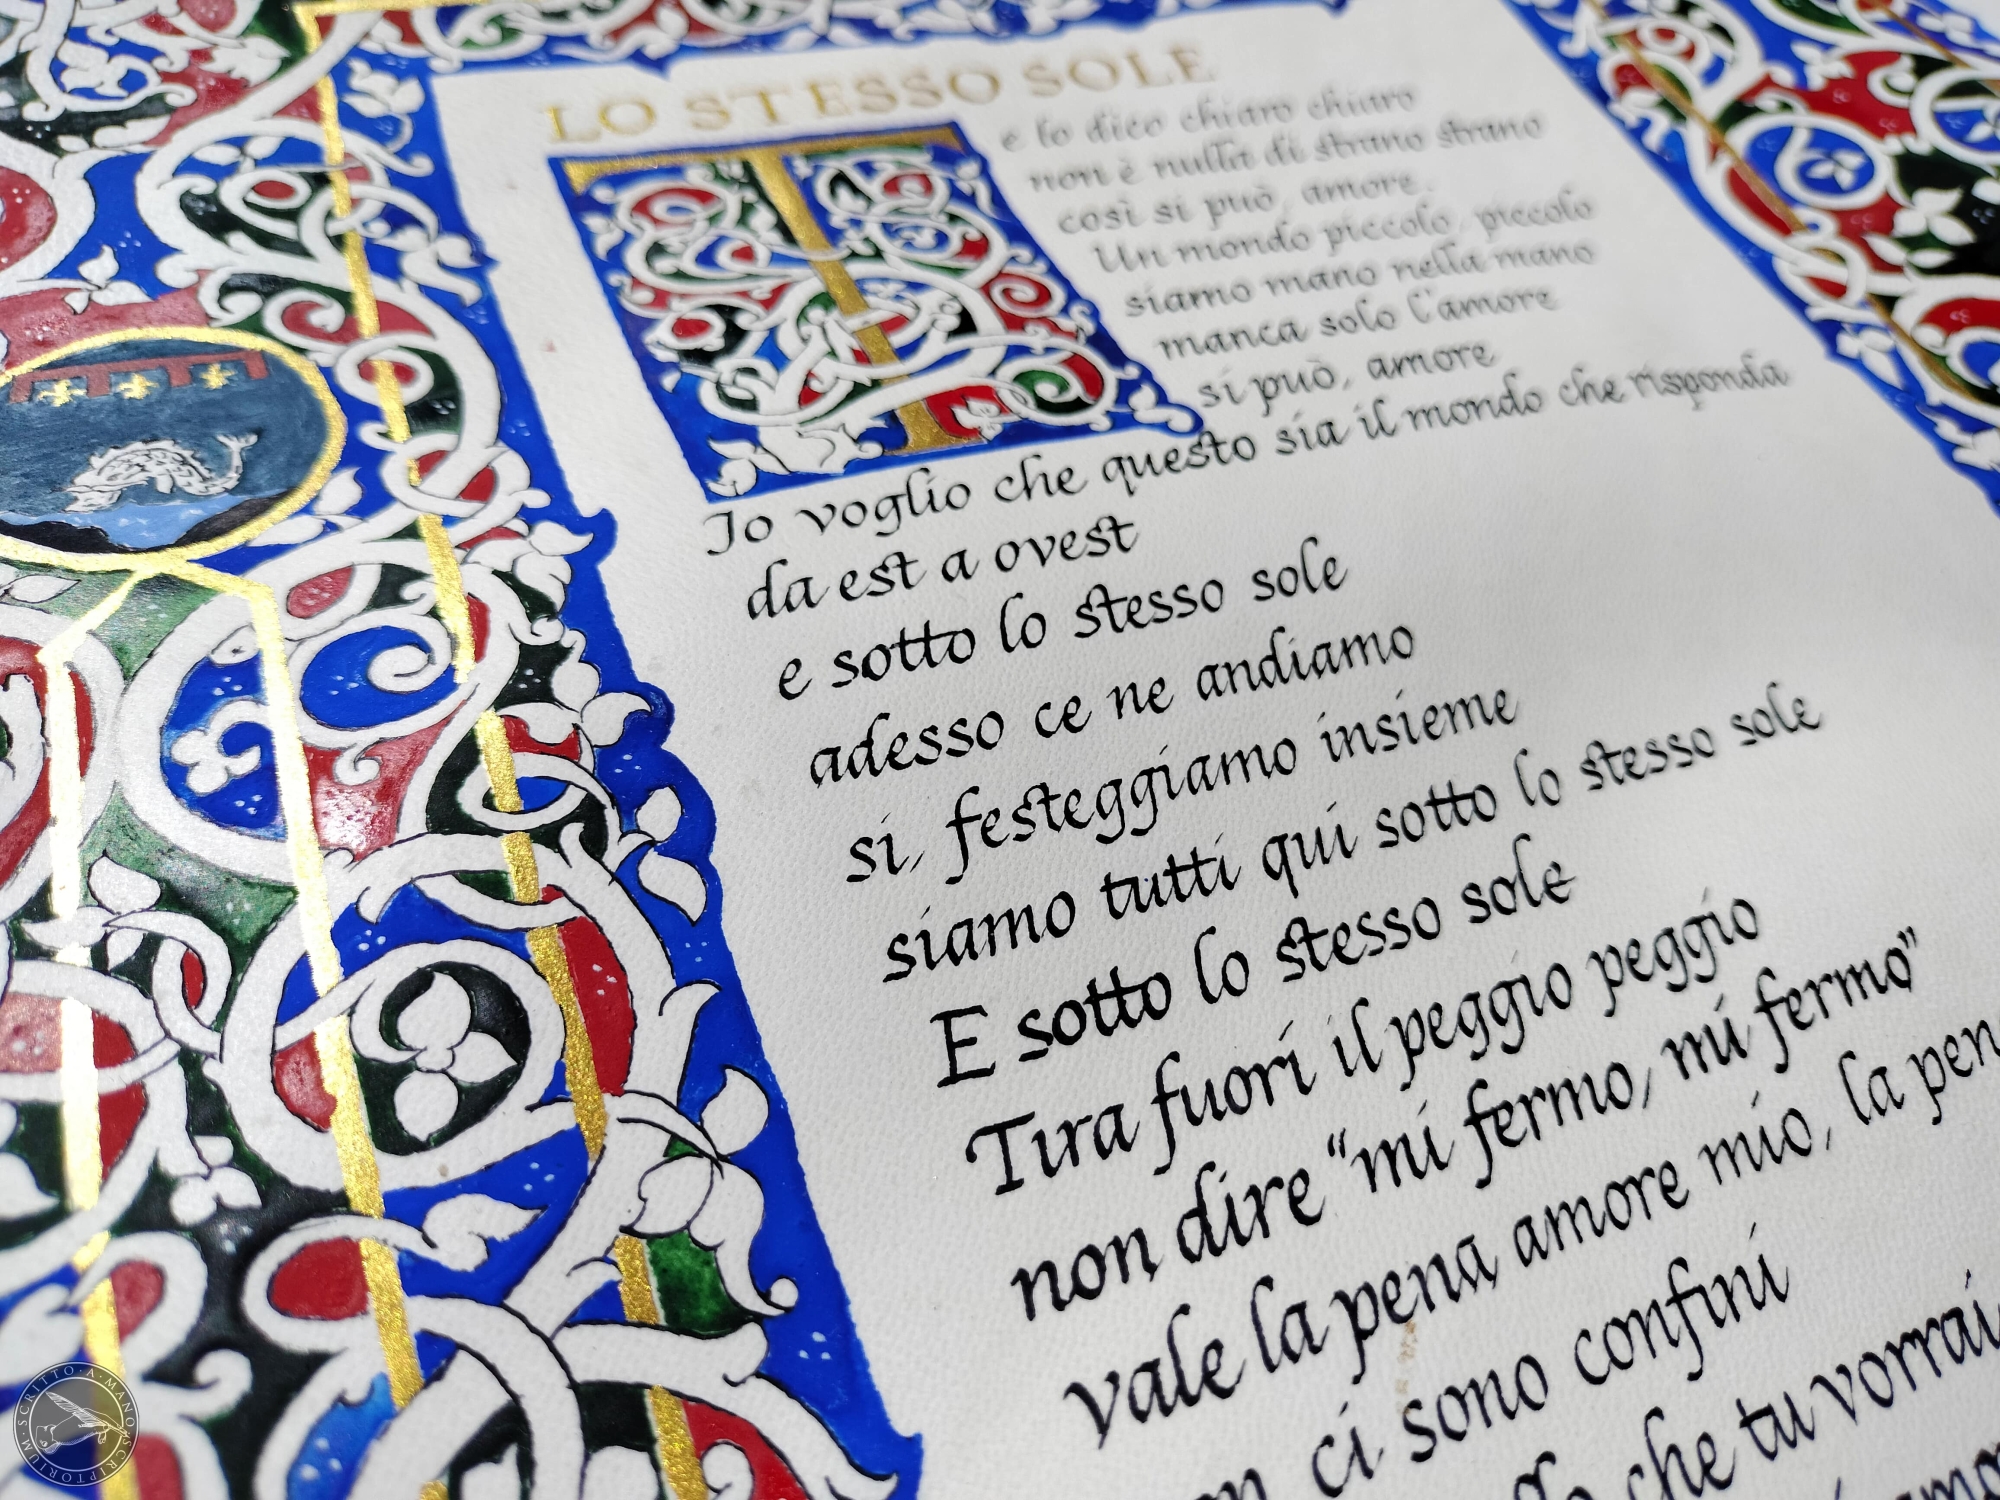 LO STESSO SOLE
I
e lo dico chiaro chiaro
non è nulla di strano strano
così si può, amore.
Un mondo piccolo, piccolo
siamo mano nella mano
manca solo l'amore
si può, amore
Io voglio che questo sia il mondo che risponda
da est a ovest
e sotto lo stesso sole
adesso ce ne andiamo
si, festeggiamo insieme
siamo tutti qui sotto lo stesso sole
E sotto lo stesso sole
Tira fuori il peggio peggio
non dire “mi fermo, mi fermo”
vale la pena amore mio, la pen
ci sono confini
che tu vorrai
SCRITTO·A·MANO·SCRIPTORIUM